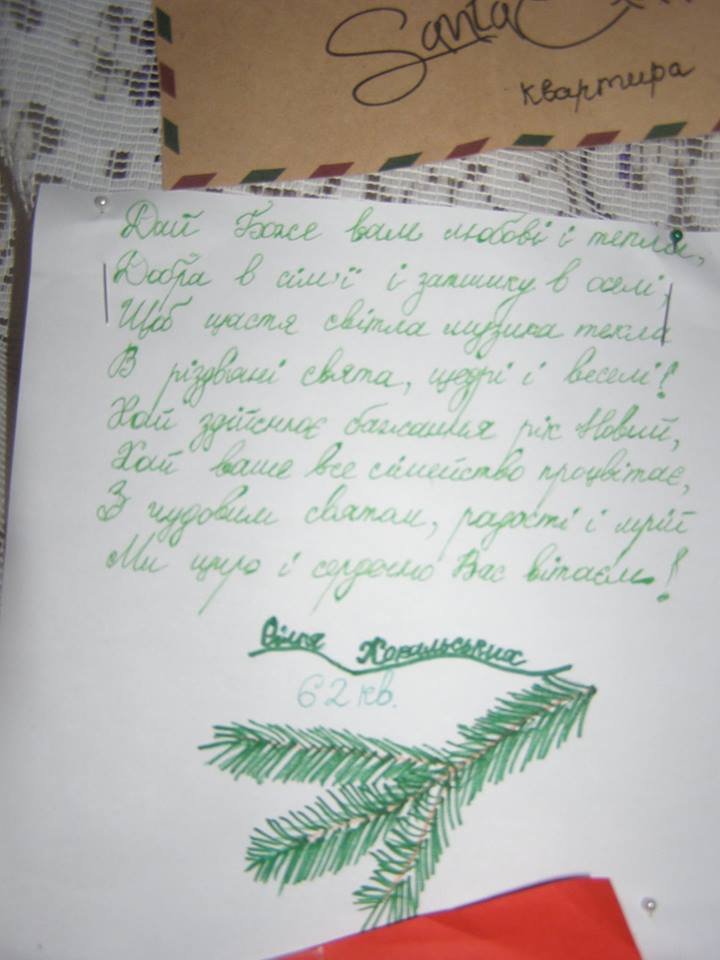 Santa C
квартира
Дай Боже вам любові і тепла,
Добра в сім'ї і затишку в оселі,
Щоб щастя світла музика текла
В різдвяні свята, щедрі і веселі!
Хай здійснює бажання рік Новий,
Хай ваше все сімейство процвітає,
З чудовим святом, радості і мрій
Ми щиро і сердечно Вас вітаєм!
Сім'я Хональських
62 кв.